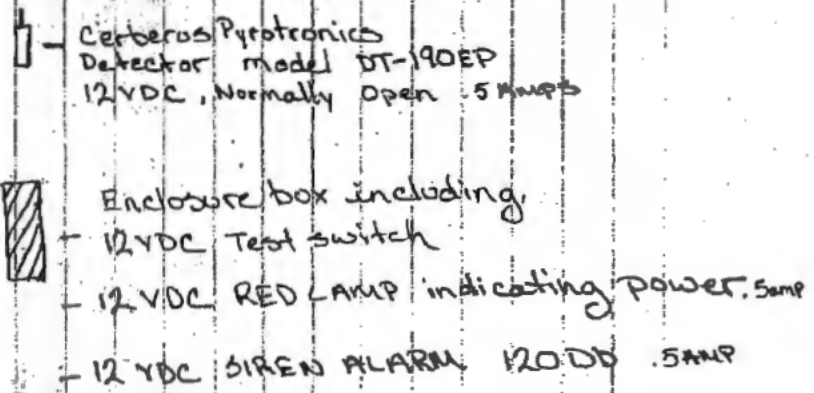 Cerberus Pyrotronics
Detector model DT-190EP
12VDC, Normally Open .5 AMPS
Enclosure box including,
- 12VDC Test switch
- 12 VDC RED LAMP indicating power .5amp
- 12 VDC SIREN ALARM 120DD .5AMP